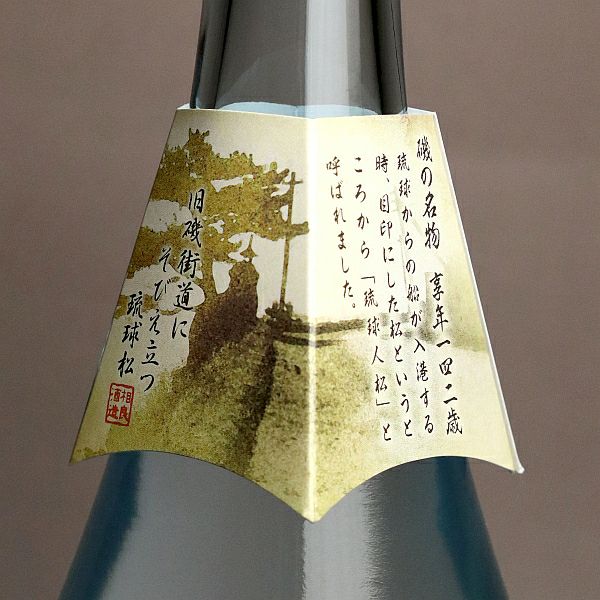 磯の名物　享年一四二歳
琉球からの船が入港する
時、目印にした松というと
ころから「琉球人松」と
呼ばれました。
旧磯街道に
そびえ立つ
琉球松
相良
酒造